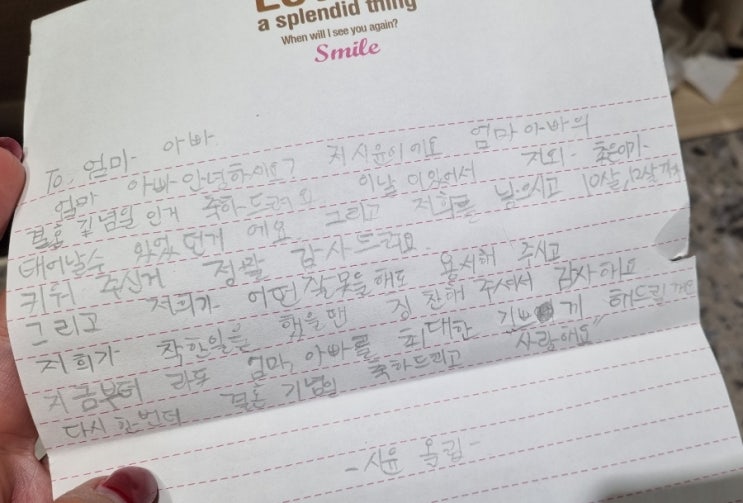 a splendid thing
When will I see you again?
Smile
To. 엄마- 아빠.
엄마 아빠 안녕하세요? 저 시윤이에요 엄마아빠의
결혼 기념일 인거 축하드려요 이날이있어서 저와
태어날수 있었던거 에요 그리고 저희를 낳으시고 10살,12살까지
키워 주신거 정말 감사드려요.
그리고 저희가 어떤잘못을해도 용서해 주시고
저희가 착한일을 했을땐 칭찬해 주셔서 감사해요
지금부터 라도 엄마, 아빠를 최대한 기쁘게 해드릴게요
다시한번더 결혼 기념일 축하드리고 사랑해요"
-시윤 올림-